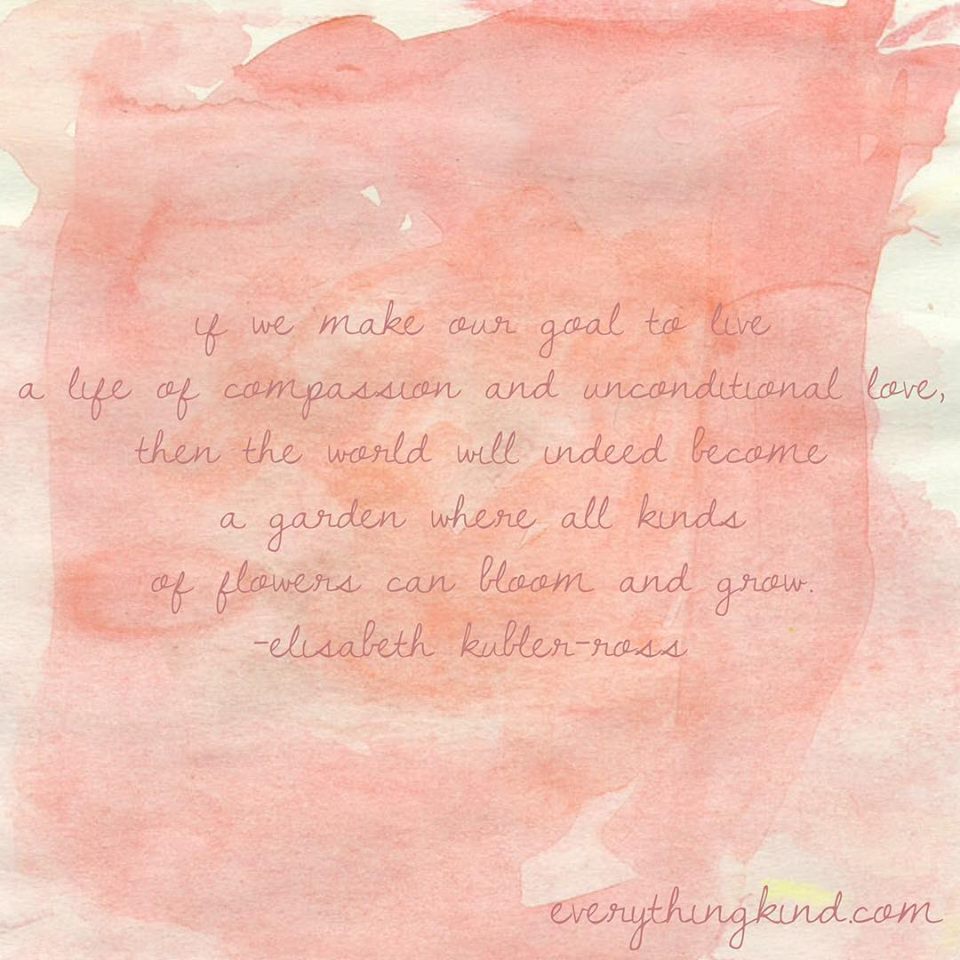 if we make our goal to live
a life of compassion and unconditional love,
then the world will indeed become
a garden where all kinds
of flowers can bloom and grow.
-elisabeth kubler-ross
everythingkind.com